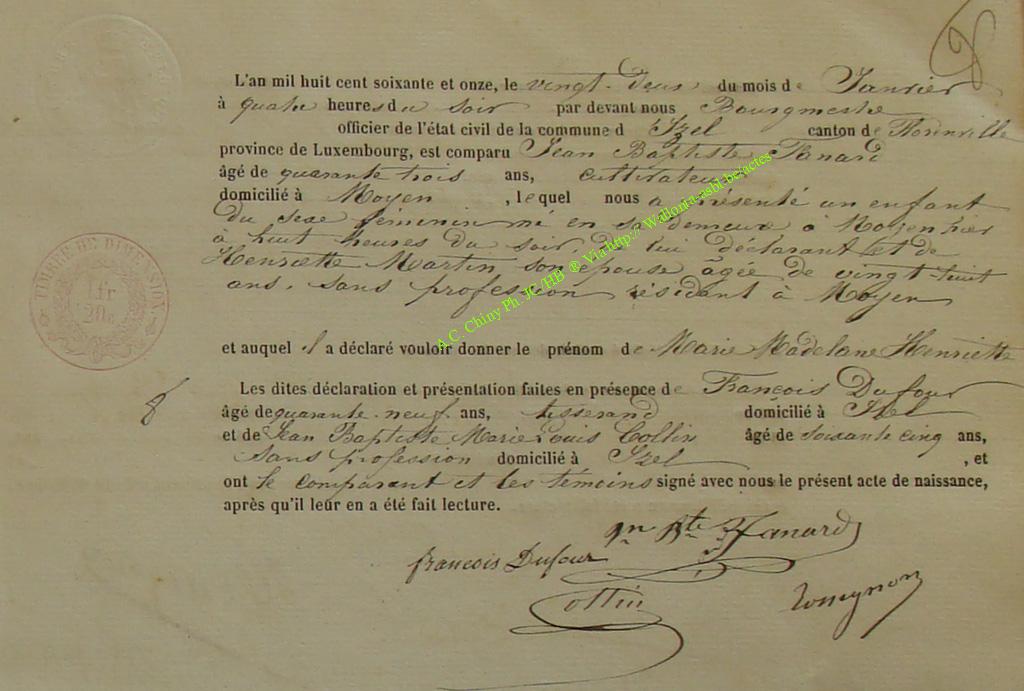 8
L'an mil huit cent soixante et onze, le vingt-deux du mois de Janvier
à quatre heures du soir par devant nous Bourgmestre
officier de l'état civil de la commune d Izel canton de Florenville
province de Luxembourg, est comparu Jean Baptiste Hanard
âgé de quarante trois ans, cultivateur
domicilié à Moyen, lequel nous a présenté un enfant
du sexe féminin né en sa demeure à Moyen hier
à huit heures du soir, de lui déclarant et de
Henriette Martin, son épouse âgée de vingt huit
ans, sans profession résidant à Moyen
TIMBRE DE DIMENSION
1fr
20c
et auquel il a déclaré vouloir donner le prénom de Marie Madelane Henriette
Les dites déclaration et présentation faites en présence de François Dufour
8
âgé de quarante-neuf ans, tisserand domicilié à Izel
et de Jean Baptiste Marie Louis Collin âgé de soixante cinq ans,
sans profession domicilié à Izel, et
ont le comparant et les témoins signé avec nous le présent acte de naissance,
après qu'il leur en a été fait lecture.
Jn Bte Hanard
françois Dufour
Collin
A C Chiny Ph. JC /HB ® Via http:// Wallonia-asbl-be/actes